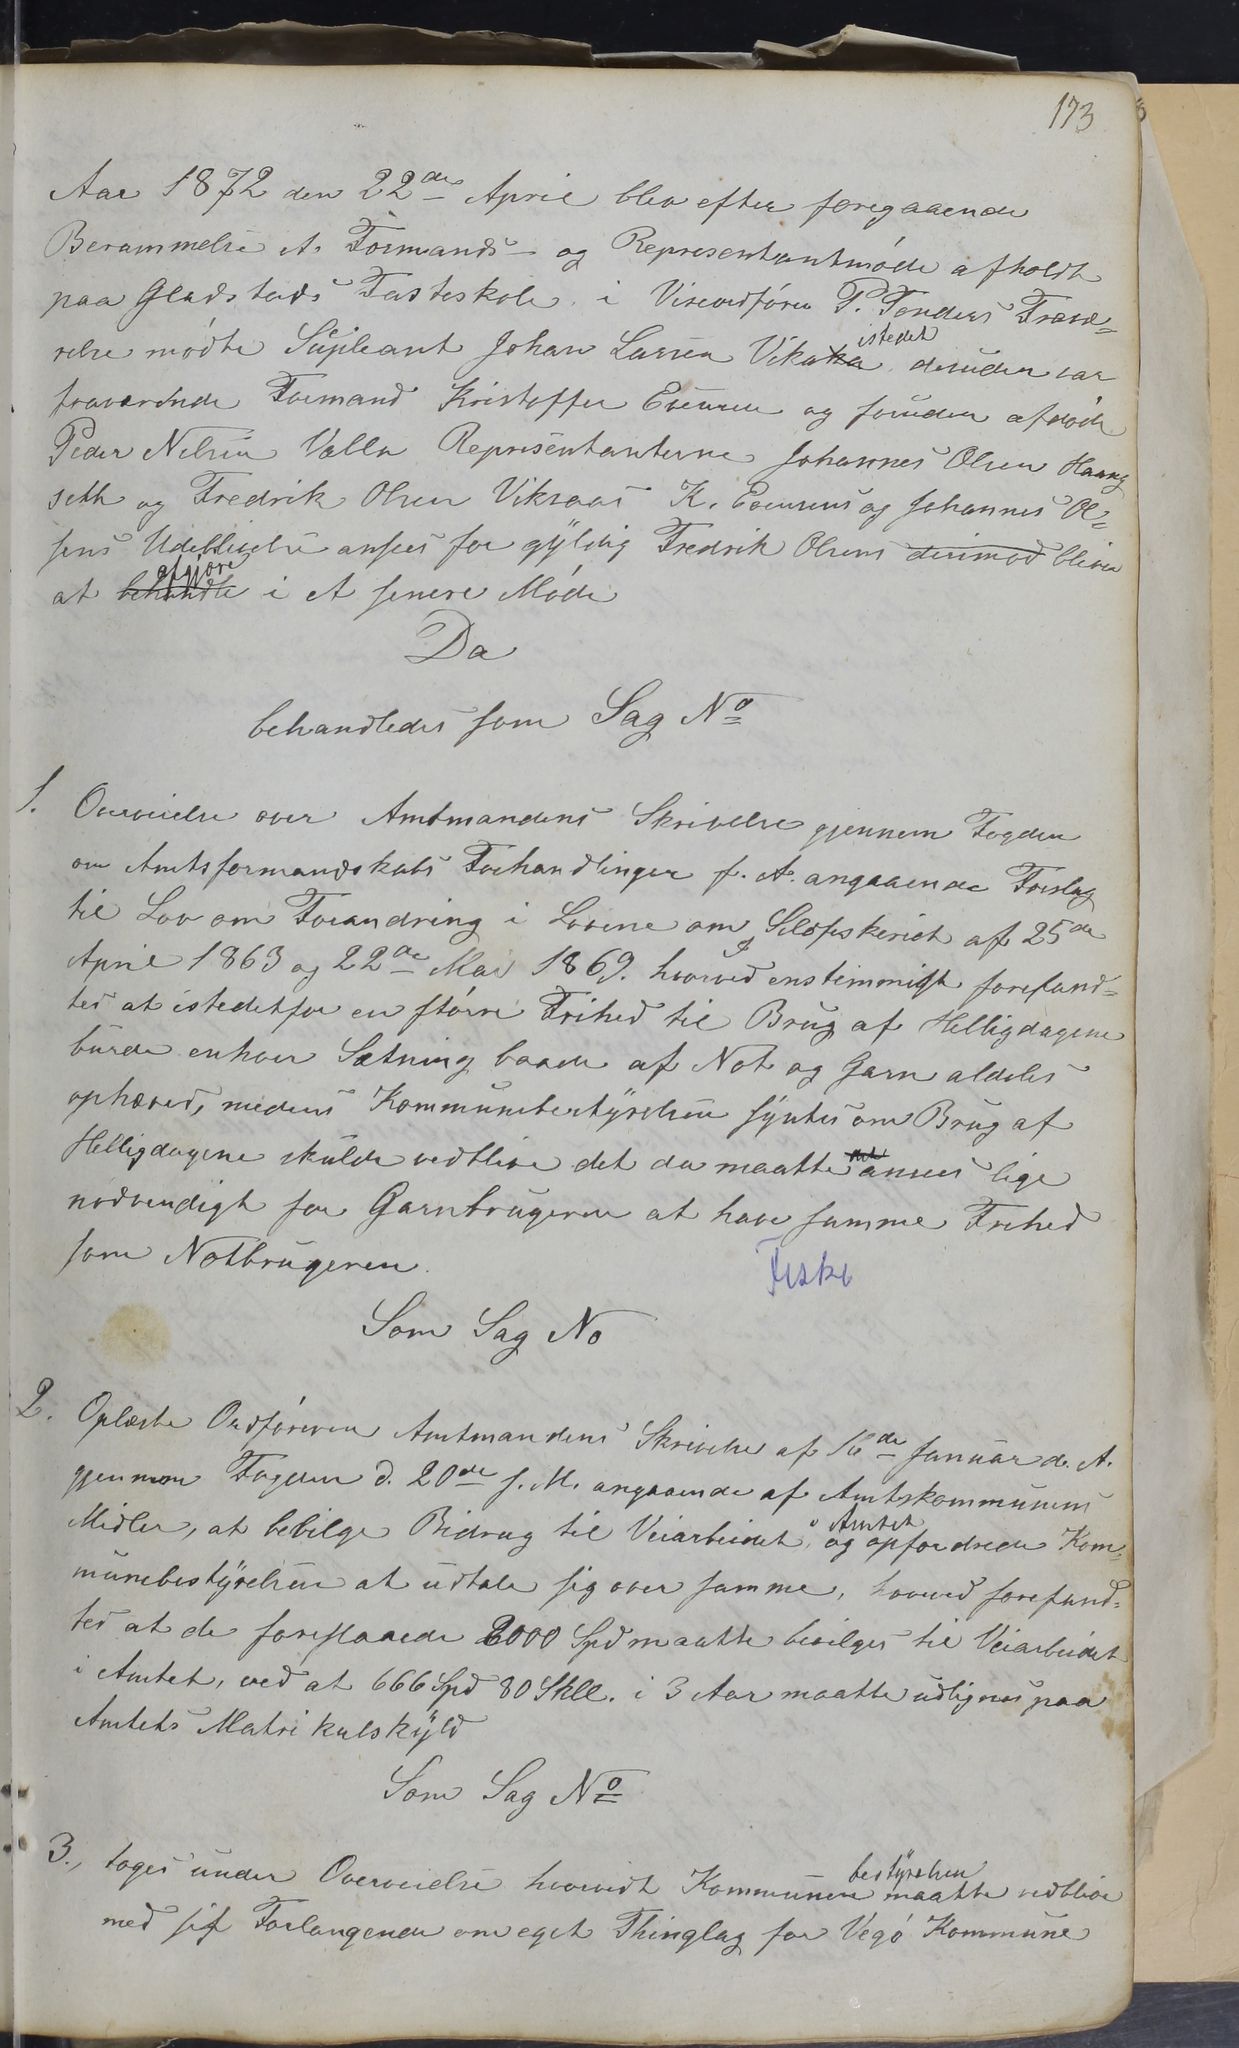 173
Aar 1872 den 22de April blev efter foregaaende
Berammelse et Formands- og Representantmøde afholdt
paa Gladstads Fasteskole i Viseordfører P. Fenders Fravæ=
relse mødte Supleant Johan Larsen Vika istedet desuden var
fraværende Formand Kristoffer Evensen og foruden afdøde
Peder Nilsen Valla Representanterne Johannes Olsen Haang
seth og Fredrik Olsen Viksaas K. Evensens og Johannes Ol=
sens Udeblivelse ansees for gyldig Fredrik Olsens derimod bliver
at behandle afgjøre i et senere Møde
Da
behandledes som Sag No
1. Overveielse over Amtmandens Skrivelse gjennem Fogden
om Amtsformandskabs Forhandlinger f. A. angaaende Forslag
til Lov om Forandring i Lovene om Sildefiskeriet af 25de
April 1863 og 22de Mai 1869. hvorved enstemmigt foresand=
tes at istedetfor en større Frihed til Brug af Helligdagene
burde enhver Sætning baade af Not og Garn aldeles
ophæves, medens Kommunebestyrelsen syntes om Brug af
Helligdagene skulde vedblive det da maatte ansees lige
nødvendigt for Garnbrugeren at have samme Frihed
som Notbrugeren.
Fiske
Som Sag No
2. Oplæste Ordføreren Amtmandens Skrivelse af 16de Januar d. A.
gjennem Fogden d. 20de s. M. angaaende af Amtskommunens
Midler, at bevilge Bidrag til Veiarbeidet i Amtet og opfordrede Kom=
munebestyrelsen at udtale sig over samme, hvorved foresand=
tes at de foreslaaede 2000 Spd maatte bevilges til Veiarbeidet
i Amtet, ved at 666 Spd 80 Skll. i 3 Aar maatte udlignes paa
Amtets Matrikulskyld
Som Sag No
3., toges under Overveielse hvorvidt Kommunebestyrelsen maatte vedblive
med sit Forlangende om eget Thinglag for Vegø Kommune